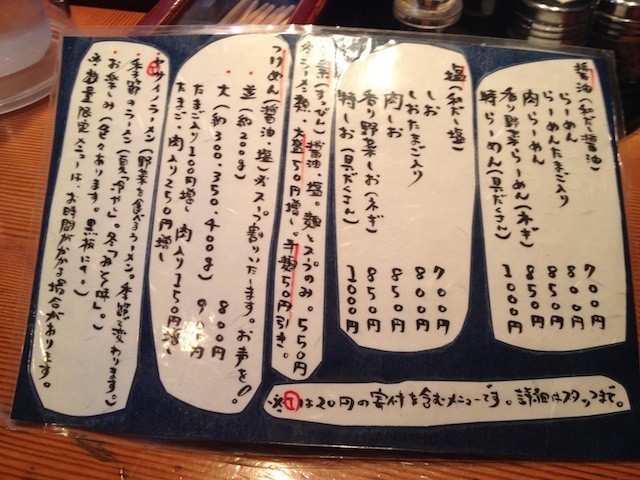 醤油(和だし醤油)
らーめん 700円
らーめんたまご入り 800円
肉らーめん 850円
香り野菜らーめん(ネギ) 850円
特らーめん(具だくさん) 1000円
塩(和だし塩)
しお 700円
しおたまご入り 800円
肉しお 850円
香り野菜しお(ネギ) 850円
特しお(具だくさん) 1000円
素(すっぴん)醤油・塩。麺とスープのみ。550円
※ラーメン類、大盛50円増し。半麺50円引き。
つけめん(醤油・塩)※スープ割りいたします。お声を。
・並(約200g) 800円
・大(約300.350.400g) 900円
たまご入り100円増し 肉入り150円増し
たまご・肉入り250円増し
・ヤサイノラーメン(野菜を食べるラーメン。季節で変わります。)
・季節のラーメン(夏「冷やし」。冬「みそ味」。)
・お楽しみ(色々あります。黒板にて。)
※数量限定メニューは、お時間がかかる場合があります。
※Tは20円の寄付を含むメニューです。詳細はスタッフまで。